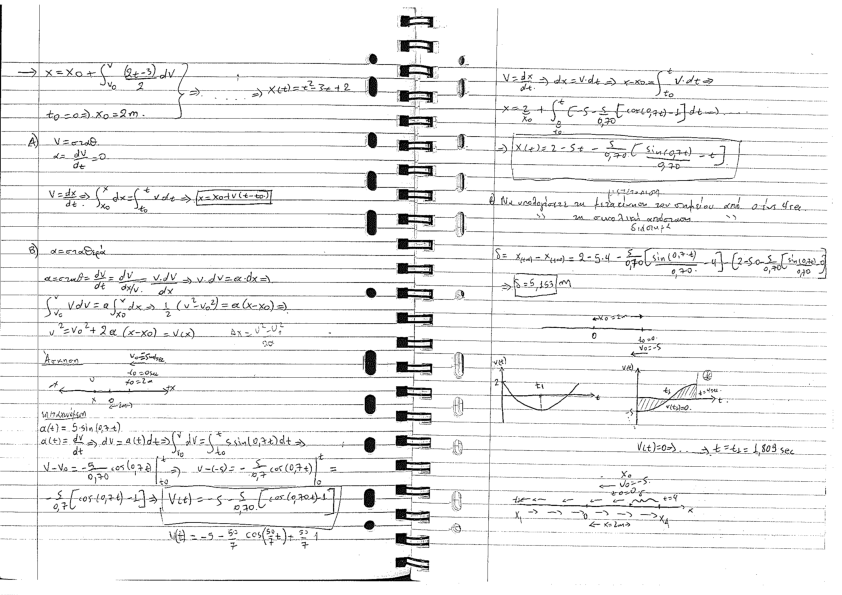 → x = x₀ + ∫_{v₀}^{v} (2t-3)/2 dv
⇒ ...... ⇒ x(t) = t² - 3t + 2
t₀ = 0 ⇒ x₀ = 2m.
A) V = σταθ.
α = dv/dt = 0
V = dx/dt ⇒ ∫_{x₀}^{x} dx = ∫_{t₀}^{t} v dt ⇒ x = x₀ + V(t - t₀)
B) α = σταθερά
α = σταθ = dv/dt = dv/(dx/v) = v·dv/dx ⇒ v·dv = α·dx ⇒
∫_{v₀}^{v} v dv = α ∫_{x₀}^{x} dx ⇒ 1/2 (v² - v₀²) = α(x - x₀) ⇒
v² = v₀² + 2α (x - x₀) = v(x)
Άσκηση
v₀ = 5m/sec
t₀ = 0sec
x₀ = 2m
α(t) = 5·sin(0,7t)
α(t) = dv/dt ⇒ dv = α(t)dt ⇒ ∫_{v₀}^{v} dv = ∫_{t₀}^{t} 5 sin(0,7t) dt ⇒
V - V₀ = -5/0,70 cos(0,7t) |_{t₀}^{t} ⇒ V - (-5) = - 5/0,7 cos(0,7t) |_{t₀}^{t} =
- 5/0,7 [cos(0,7t) - 1] ⇒ V(t) = -5 - 5/0,70 [cos(0,70t) - 1]
V(t) = -5 - 50/7 cos(50/7 t) + 50/7
V = dx/dt ⇒ dx = v·dt ⇒ x - x₀ = ∫_{t₀}^{t} v·dt ⇒
x = 2 + ∫_{0}^{t} [-5 - 5/0,70 [cos(0,7t) - 1] dt ⇒ ....
x₀ t₀
⇒ x(t) = 2 - 5t - 5/0,70 [sin(0,7t)/0,70 - t]
Να υπολογίσετε τη μετατόπιση του σημείου από 0 έως 4 sec.
'' τη συνολική απόσταση ''
δ = x(t=4) - x(t=0) = 2 - 5·4 - 5/0,70 [sin(0,7·4)/0,70 - 4] - [2 - 5·0 - 5/0,70 [sin(0,7·0)/0,70
⇒ δ = 5,153 m
x₀ = 2m
0 t₀ = 0
v₀ = -5
v(t) v(t)
2 t₁ t t₁ t = 4sec
-5 v(t) = 0 t
V(t) = 0 ⇒ .... ⇒ t = t₁ = 1,809 sec
x₀
v₀ = -5
t₀ = 0
t = 4
x₁ 0 x₄ x
x = 2m